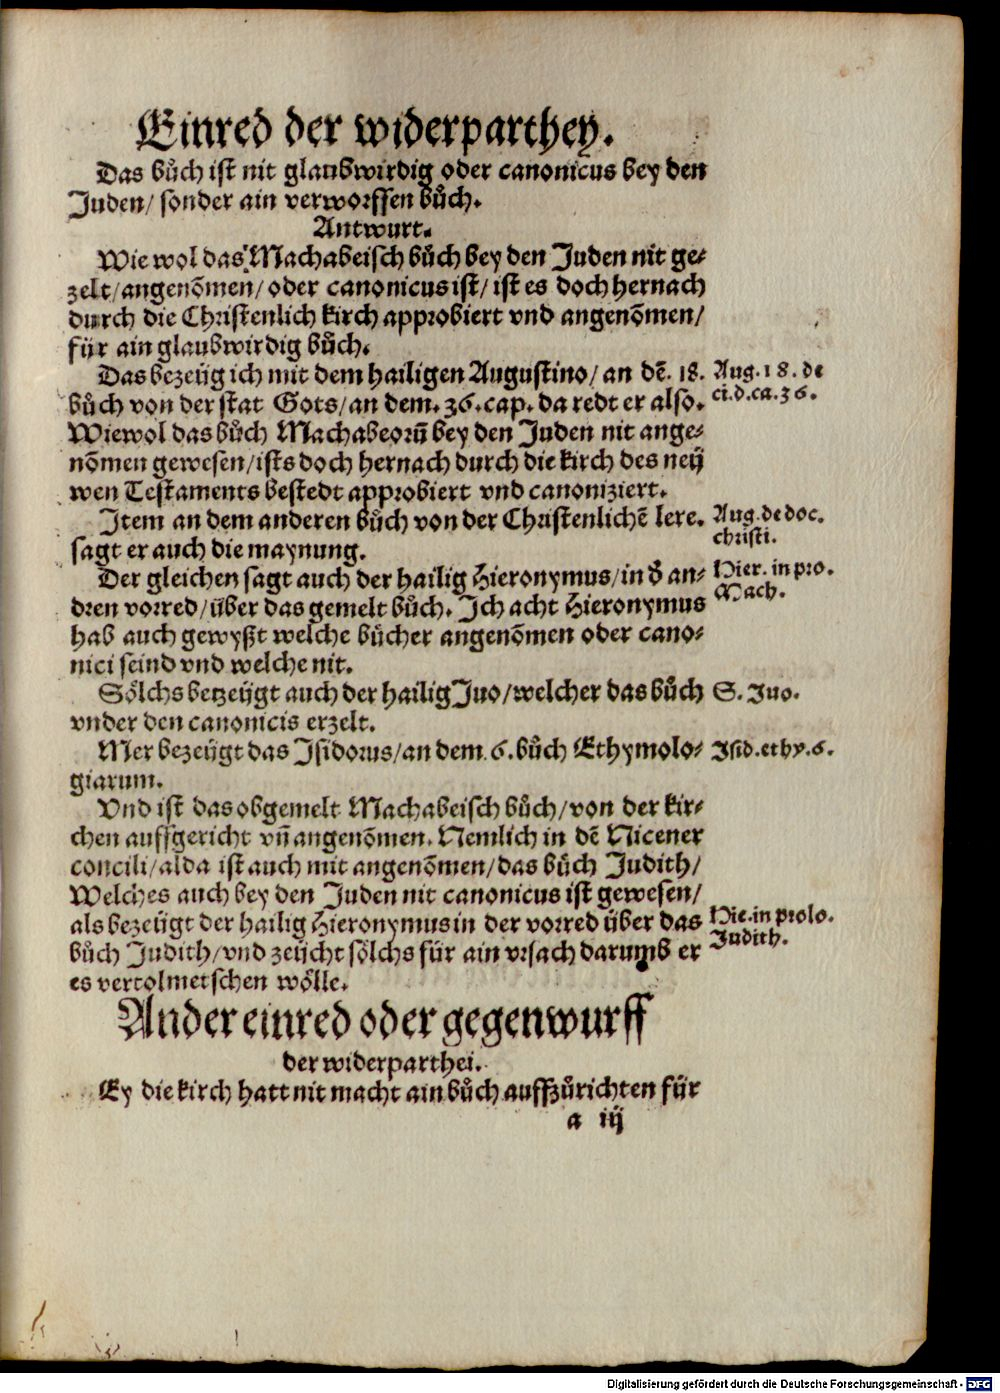 Einred der widerparthey.
Das bůch ist nit glaubwirdig oder canonicus bey den
Juden/ sonder ain verworffen bůch.
Antwurt.
Wie wol das Machabeisch bůch bey den Juden nit ge⸗
zelt/angenõmen/oder canonicus ist/ ist es doch hernach
durch die Christenlich kirch approbiert vnd angenõmen/
für ain glaubwirdig bůch.
Das bezeüg ich mit dem hailigen Augustino/ an dẽ. 18.
bůch von der stat Gots/an dem. 36. cap. da redt er also.
Aug. 18. de
ci.d.ca.36.
Wiewol das bůch Machabeorũ bey den Juden nit ange⸗
nõmen gewesen/ists doch hernach durch die kirch des neü
wen Testaments bestedt approbiert vnd canoniziert.
Item an dem anderen bůch von der Christenlichẽ lere.
sagt er auch die maynung.
Aug. de doc.
christi.
Der gleichen sagt auch der hailig Hieronymus/in ð an⸗
dren vorred/über das gemelt bůch. Ich acht Hieronymus
Hier. in pro.
Mach.
hab auch gewyßt welche bücher angenõmen oder cano⸗
nici seind vnd welche nit.
Sölchs betzeügt auch der hailig Juo/welcher das bůch
S. Juo.
vnder den canonicis erzelt.
Mer bezeügt das Isidorus/an dem .6. bůch Ethymolo⸗
Isid. ethy. 6.
giarum.
Vnd ist das obgemelt Machabeisch bůch/von der kir⸗
chen auffgericht vñ angenõmen. Nemlich in dẽ Nicener
concili/alda ist auch mit angenõmen/das bůch Judith/
Welches auch bey den Juden nit canonicus ist gewesen/
als bezeügt der hailig Hieronymus in der vorred über das
bůch Judith/vnd zeücht sölchs für ain vrsach darumb er
Hie. in prolo.
Judith.
es vertolmetschen wölle.
Ander einred oder gegenwurff
der widerparthei.
Ey die kirch hatt nit macht ain bůch auffzůrichten für
a iij
Digitalisierung gefördert durch die Deutsche Forschungsgemeinschaft - DFG